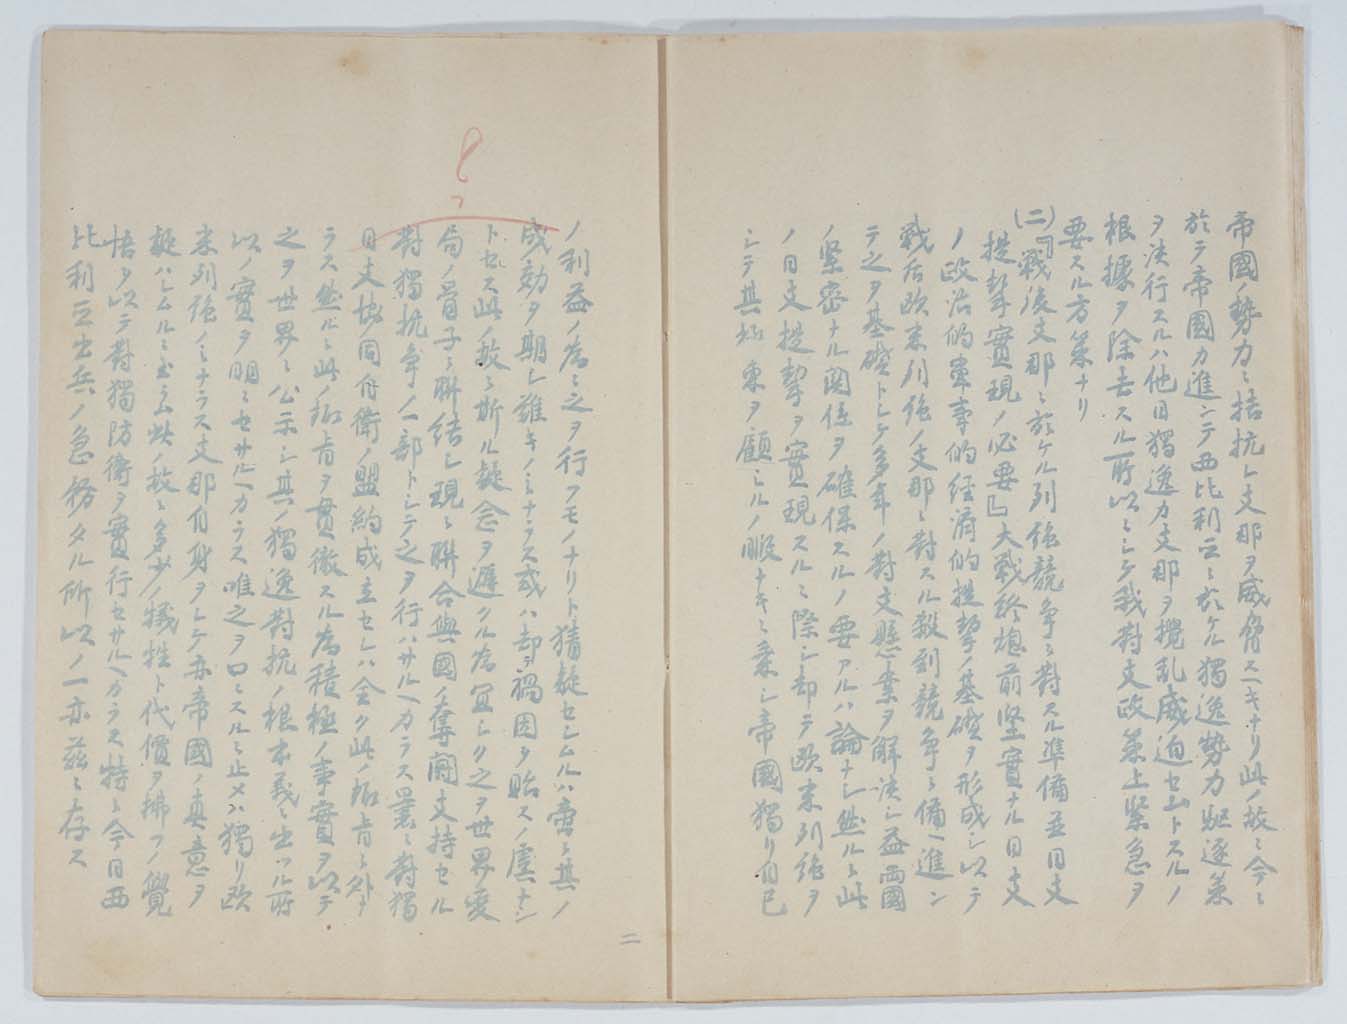 帝國ノ勢力ニ拮抗シ支那ヲ威脅スヘキナリ此ノ故ニ今ニ
於テ帝國カ進ンテ西比利亞ニ於ケル獨逸勢力駆逐策
ヲ決行スルハ他日獨逸カ支那ヲ攪乱威迫セムトスルノ
根據ヲ除去スル所以ニシテ我對支政策上緊急ヲ
要スル方策ナリ
(二)『戰後支那ニ於ケル列強競争ニ對スル準備並日支
提挈實現ノ必要』大戰終熄前堅實ナル日支
ノ政治的軍事的経濟的提挈ノ基礎ヲ形成シ以テ
戰后欧米列強ノ支那ニ對スル殺到競争ニ備ヘ進ン
テ之ヲ基礎トシテ多年ノ對支懸案ヲ解決シ益両國
ノ緊密ナル関係ヲ確保スルノ要アルハ論ナシ然ルニ此
ノ日支提挈ヲ實現スルニ際シ却テ欧米列強ヲ
シテ其極東ヲ顧ミルノ暇ナキニ乗シ帝國獨リ自己
ノ利益ノ為ニ之ヲ行フモノナリト猜疑セシムルハ啻ニ其ノ
成効ヲ期シ難キノミナラス或ハ却テ禍因ヲ貽スノ虞ナシ
トセス此ノ故ニ斯ル疑念ヲ避クル為宜シク之ヲ世界変
局ノ骨子ニ聯結シ現ニ聯合與國ノ奪闘支持セル
對獨抗争ノ一部トシテ之ヲ行ハサルヘカラス曩ニ對獨
日支協同自衛ノ盟約成立セシハ全ク此ノ趣旨ニ外ナ
ラス然ルニ此ノ趣旨ヲ貫徹スル為積極ノ事實ヲ以テ
之ヲ世界ニ公示シ其ノ獨逸對抗ノ根本義ニ出ツル所
以ノ實ヲ明ニセサルヘカラス唯之ヲ口ニスルニ止メハ獨リ欧
米列強ノミナラス支那自身ヲシテ亦帝國ノ真意ヲ
疑ハシムルニ至ラム此ノ故ニ多少ノ犠牲ト代償ヲ拂フノ覺
悟ヲ以テ對獨防衛ヲ實行セサルヘカラス特ニ今日西
比利亞出兵ノ急務タル所以ノ一亦茲ニ存ス
二